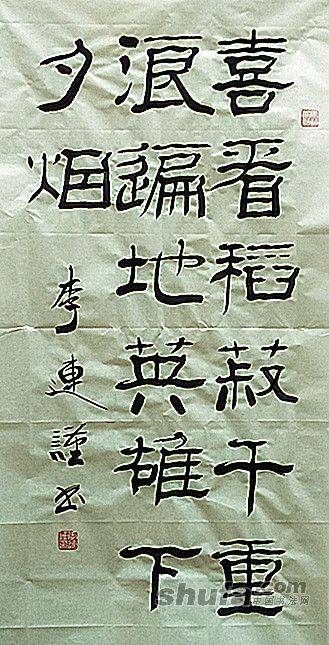 喜看稻菽千重
浪遍地英雄下
夕烟
李連謹书
中国书法网